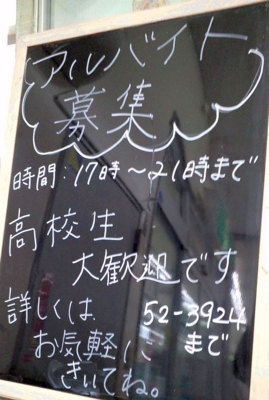 アルバイト
募集
時間:17時～21時まで
高校生
大歓迎です
詳しくは 52-3924
お気軽に まで
きいてね。